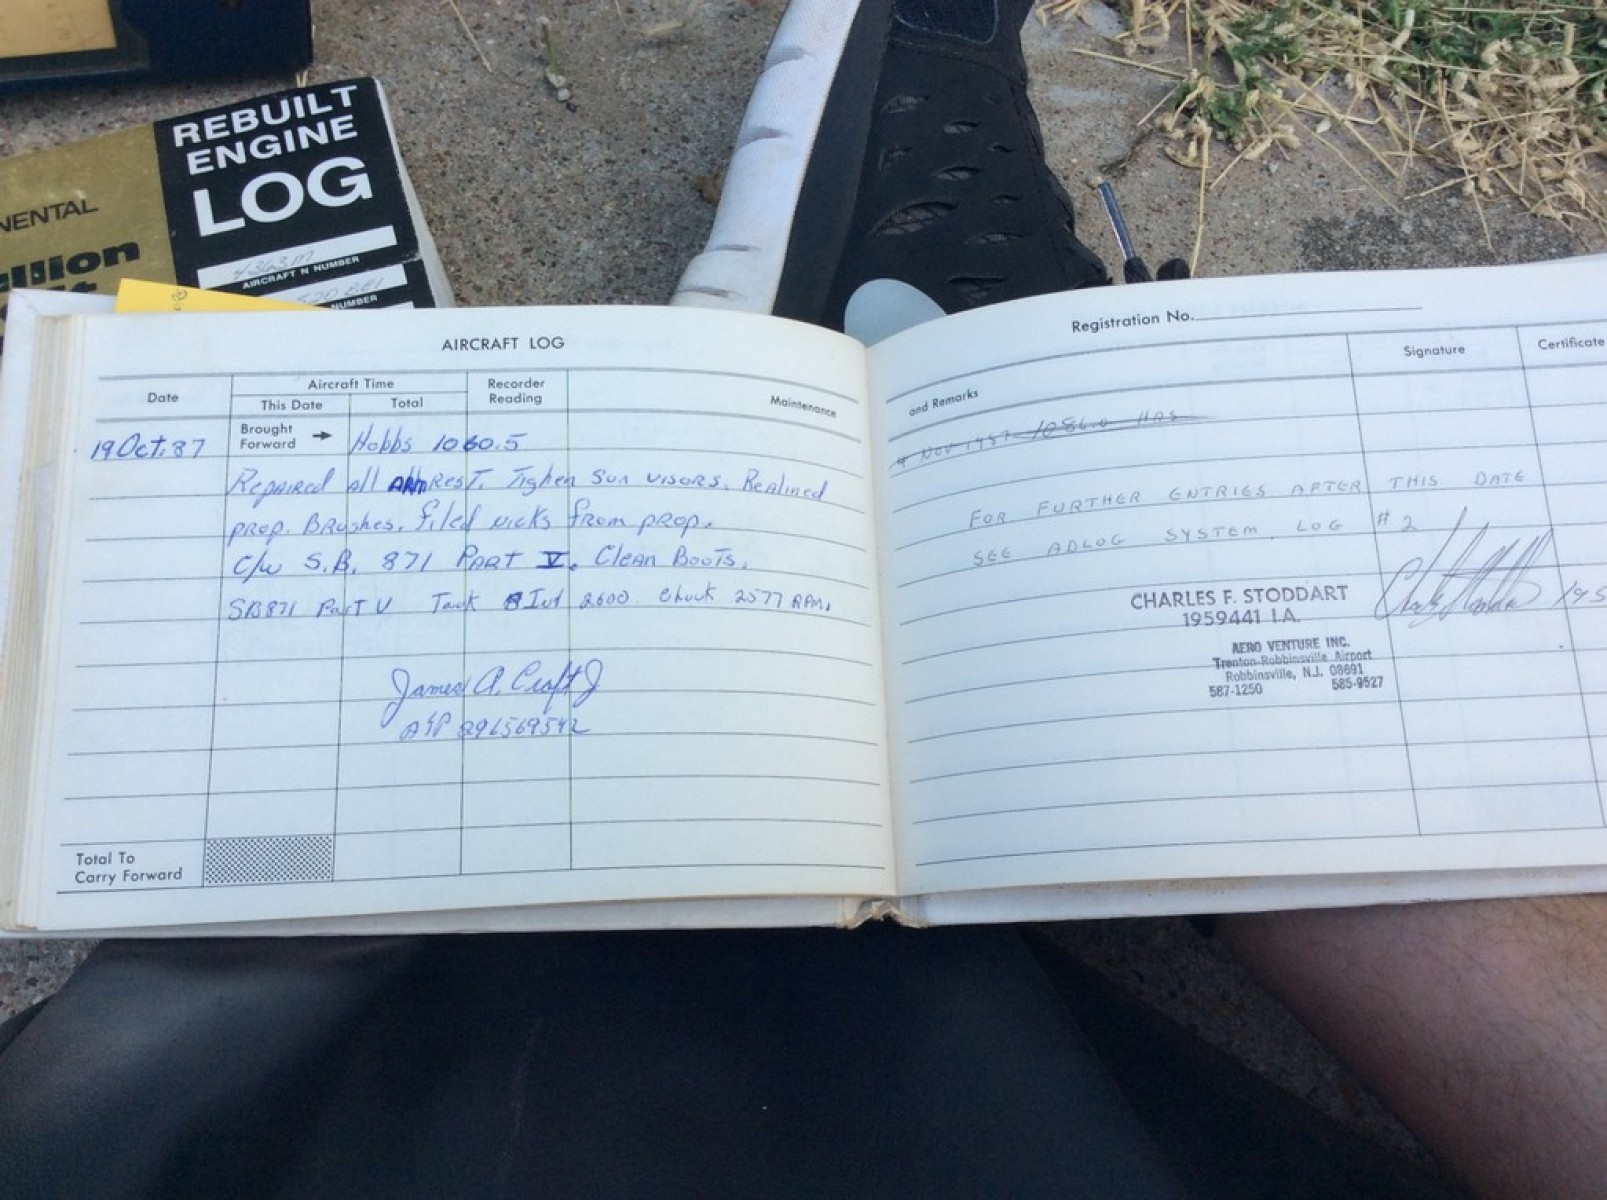 REBUILT
ENGINE
LOG
NENTAL
4363M
AIRCRAFT N NUMBER
NUMBER
AIRCRAFT LOG
Date
Aircraft Time
This Date
Total
Recorder
Reading
Maintenance
19 Oct. 87
Brought
Forward →
Hobbs 1060.5
Repaired all ARM REST. Tighen Sun visors. Realined
prop. Brushes. filed nicks from prop.
C/w S.B. 871 PART V. Clean Boots.
SB871 Part V Tack Ind 2600 Chuck 2577 RPM.
James A. Craft J
A&P 296569542
Total To
Carry Forward
Registration No.
and Remarks
Signature
Certificate
4 NOV 1987 1086.0 HRS
FOR FURTHER ENTRIES AFTER THIS DATE
SEE ADLOG SYSTEM LOG #2
CHARLES F. STODDART
1959441 I.A.
195
AERO VENTURE INC.
Trenton-Robbinsville Airport
Robbinsville, N.J. 08691
587-1250 585-9527